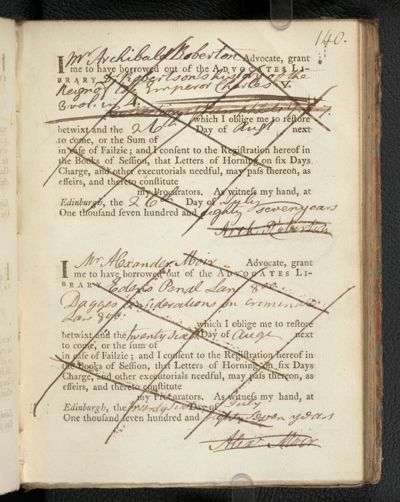 140.
I Mr Archibald Robertson Advocate, grant
me to have borrowed out of the ADVOCATES LI-
BRARY Dr Robertson's history of the
Reign of the Emperor Charles V.
3 vol. in 4
which I oblige me to restore
betwixt and the 26th Day of Augt next
to come, or the Sum of
in case of Failzie; and I consent to the Registration hereof in
the Books of Session, that Letters of Horning on six Days
Charge, and other executorials needful, may pass thereon, as
effeirs, and thereto constitute
my Procurators. As witness my hand, at
Edinburgh, the 26th Day of July
One thousand seven hundred and eighty seven years
Arch. Robertson
I Mr Alexander Moir Advocate, grant
me to have borrowed out of the ADVOCATES LI-
BRARY Edens Penal Law 8vo.
Dagges considerations on criminal
Law 8vo.
which I oblige me to restore
betwixt and the twenty sixth Day of Augt next
to come, or the sum of
in case of Failzie; and I consent to the Registration hereof in
the Books of Session, that Letters of Horning on six Days
Charge, and other executorials needful, may pass thereon, as
effeirs, and thereto constitute
my Procurators. As witness my hand, at
Edinburgh, the twenty six Day of July
One thousand seven hundred and eighty seven years
Alexr Moir